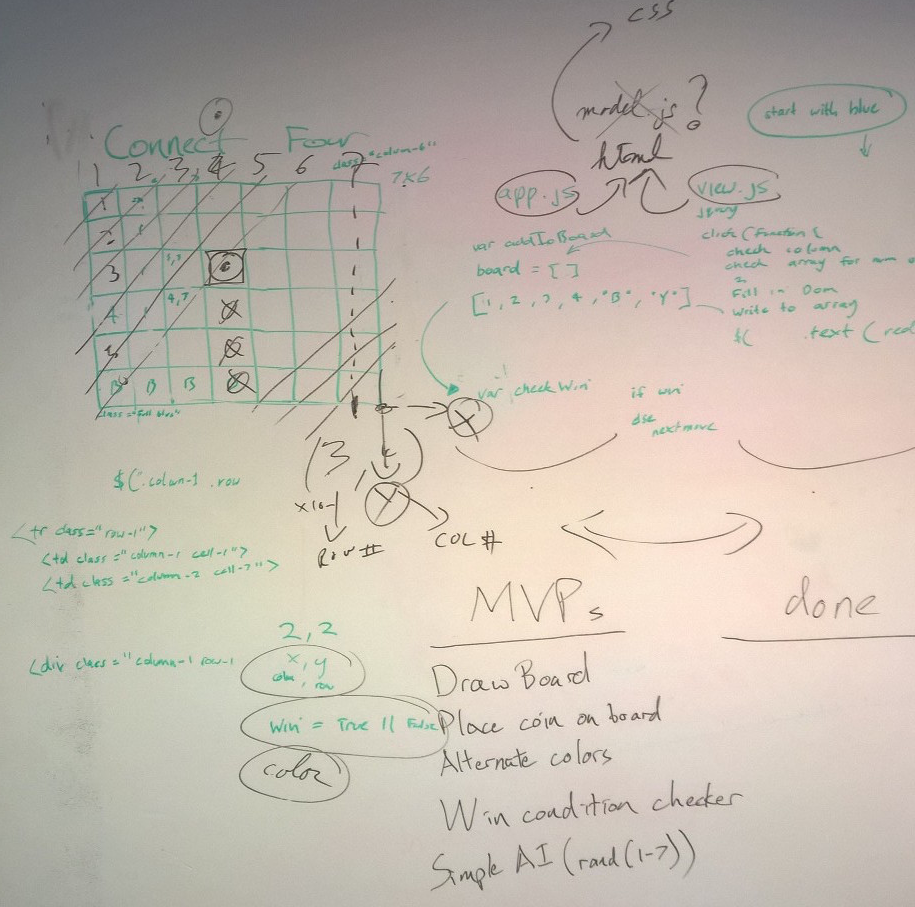 css
model.js?
html
start with blue
app.js
view.js
jquery
Connect Four
class="column-6"
1 2 3 4 5 6 7
7x6
1
2
3
3,3
4
4,3
5
B B B
class="full blue"
var addToBoard
board = [ ]
[1, 2, 3, 4, "B", "Y"]
click (Function {
check column
check array for num
Fill in Dom
write to array
$( .text (red
var checkWin
if win
else
nextmove
(3 )
Row #
COL #
$(".column-1 .row
<tr class="row-1">
<td class="column-1 cell-1">
<td class="column-2 cell-2">
<div class="column-1 row-1
2,2
x, y
column, row
Win = True || False
color
MVPs
Draw Board
Place coin on board
Alternate colors
Win condition checker
Simple AI (rand(1-7))
done